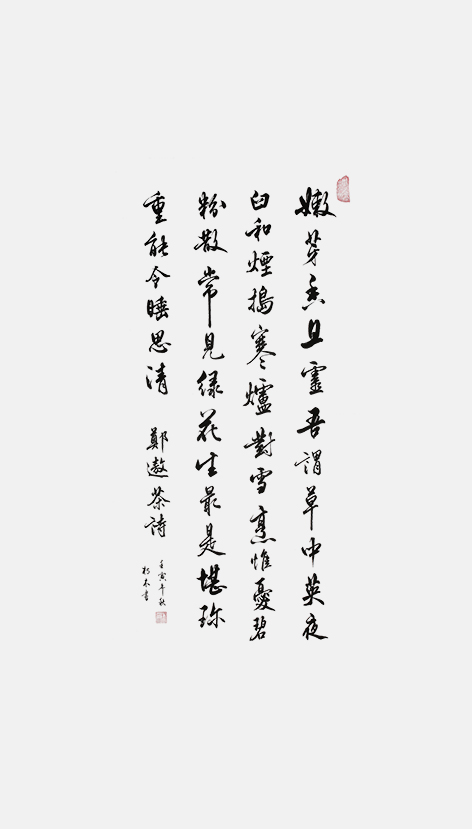 嫩芽香且靈吾謂草中英夜
臼和煙搗寒爐對雪烹惟憂碧
粉散常見綠花生最是堪珍
重能令睡思清 鄭遨茶詩
壬寅年秋
朽木書